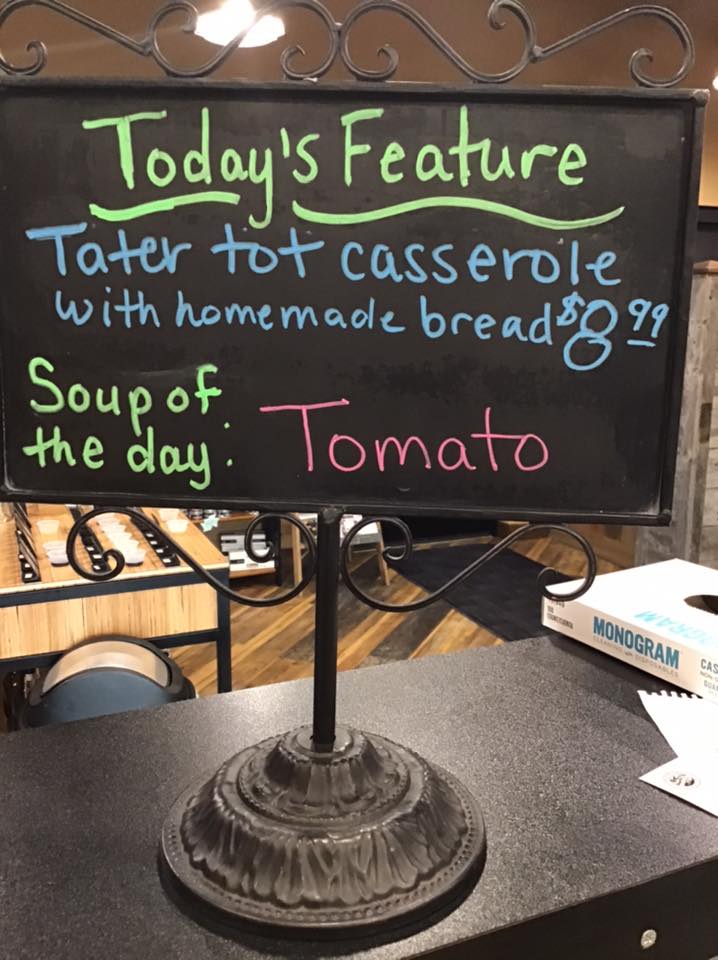 Today's Feature
Tater tot casserole
with homemade bread $8.99
Soup of
the day: Tomato
MONOGRAM